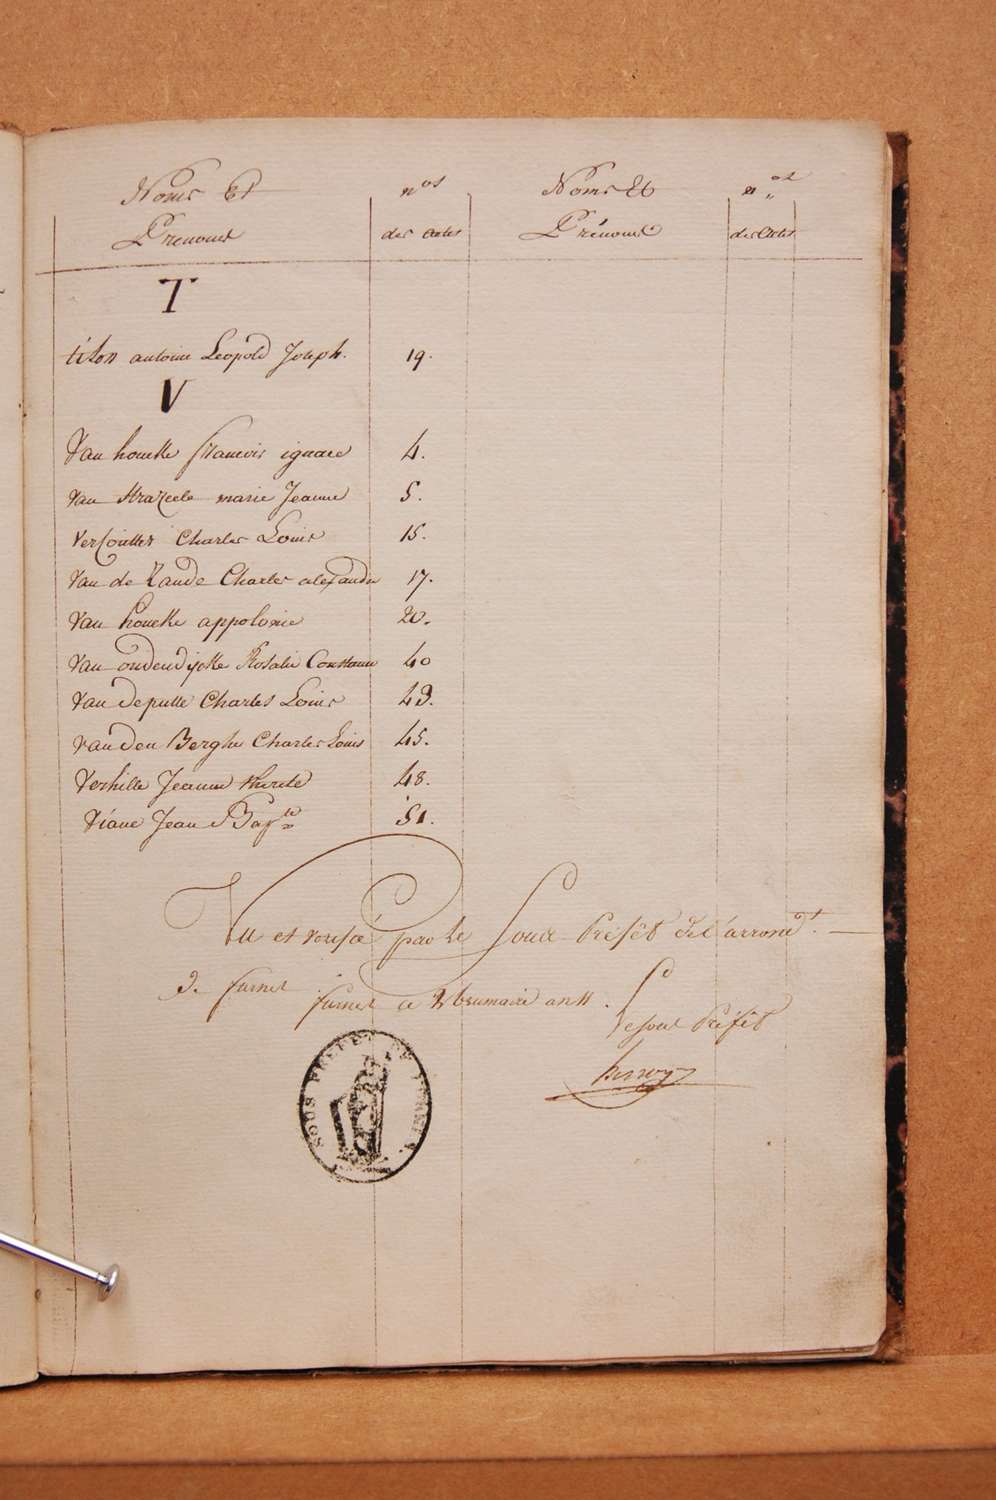 Noms Et nos Noms Et nos
Prénoms des actes Prénoms des actes
T
titon antoine Leopold Joseph. 19.
V
Van houcke francois ignace 4.
van Strazeele marie Jeanne 5.
Charles Louis 15.
Van de Kande Charles alexandre 17.
Van houcke appolonie 20.
Van oudendijcke Rosalie Constance 40
Van deputte Charles Louis 43.
van den Berghe Charles Louis 45.
Verhille Jeanne therese 48.
Viane Jean Bapte 51.
Vu et verifié par le Sous Préfêt de l'arrondt.
de furnes furnes ce 2 brumaire an 11.
le sous Préfêt
SOUS PREFET